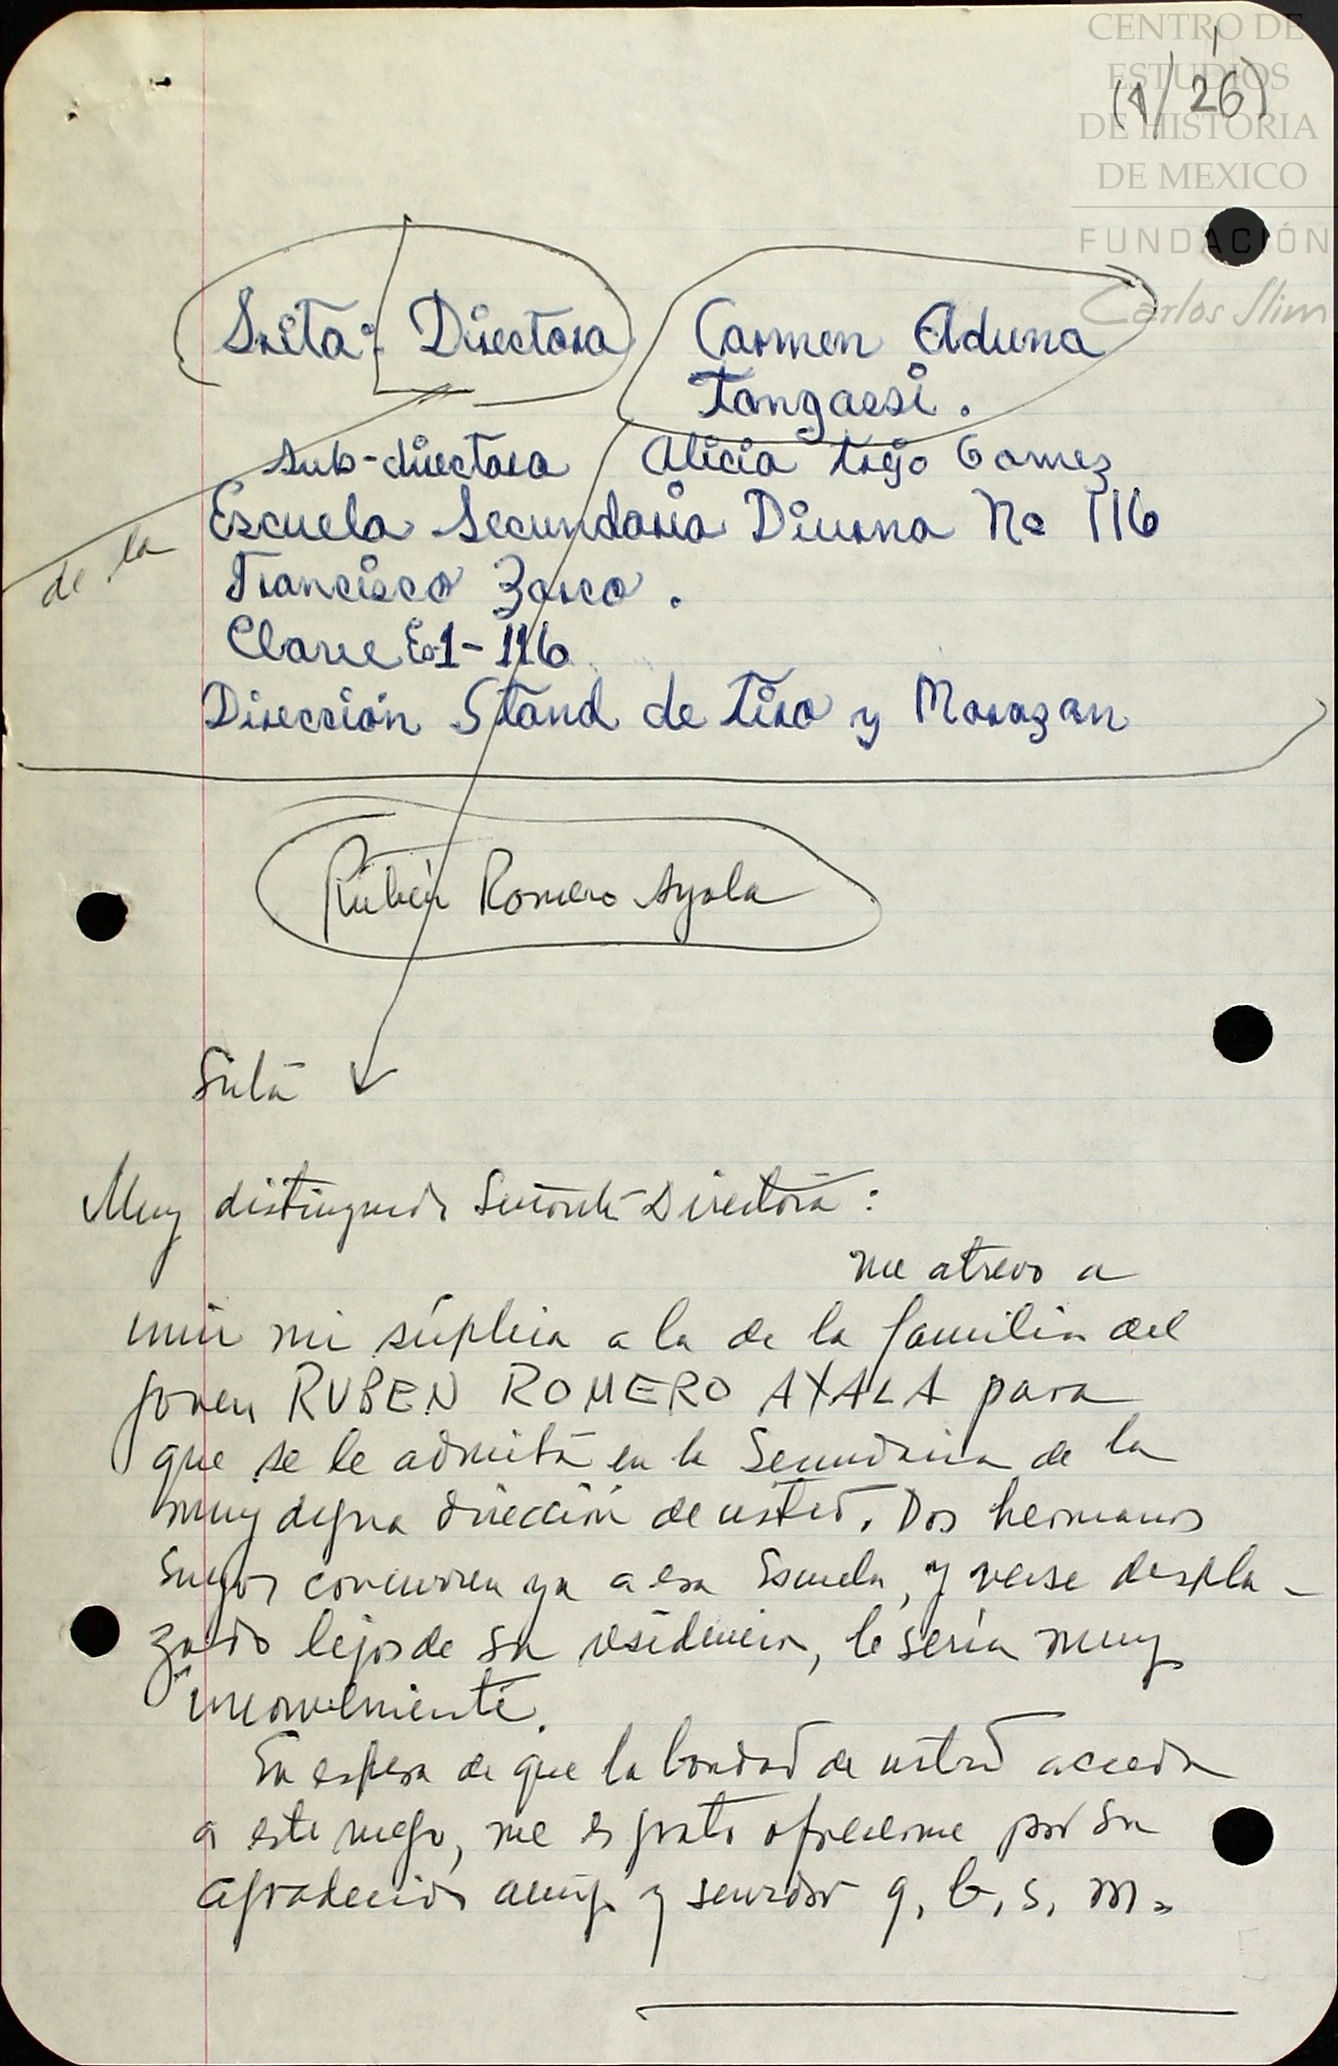 CENTRO DE
ESTUDIOS
DE HISTORIA
DE MEXICO
FUNDACIÓN
Carlos Slim
(1/26)
Srita: Directora Carmen Aduna
Tangassi.
sub-directora Alicia trejo Gomez
de la Escuela Secundaria Diurna No 116
Francisco Zarco.
Clave Es1-116
Dirección Stand de Tiro y Morazan
Rubén Romero Ayala
Srita
Muy distinguida Señorita Directora:
me atrevo a
unir mi súplica a la de la familia del
joven RUBEN ROMERO AYALA para
que se le admita en la Secundaria de la
muy digna dirección de usted. Dos hermanos
suyos concurren ya a esa Escuela, y verse despla-
zado lejos de su residencia, le sería muy
inconveniente.
En espera de que la bondad de usted acceda
a este ruego, me es grato ofrecerme por su
agradecido amigo y servidor q. b. s. m.